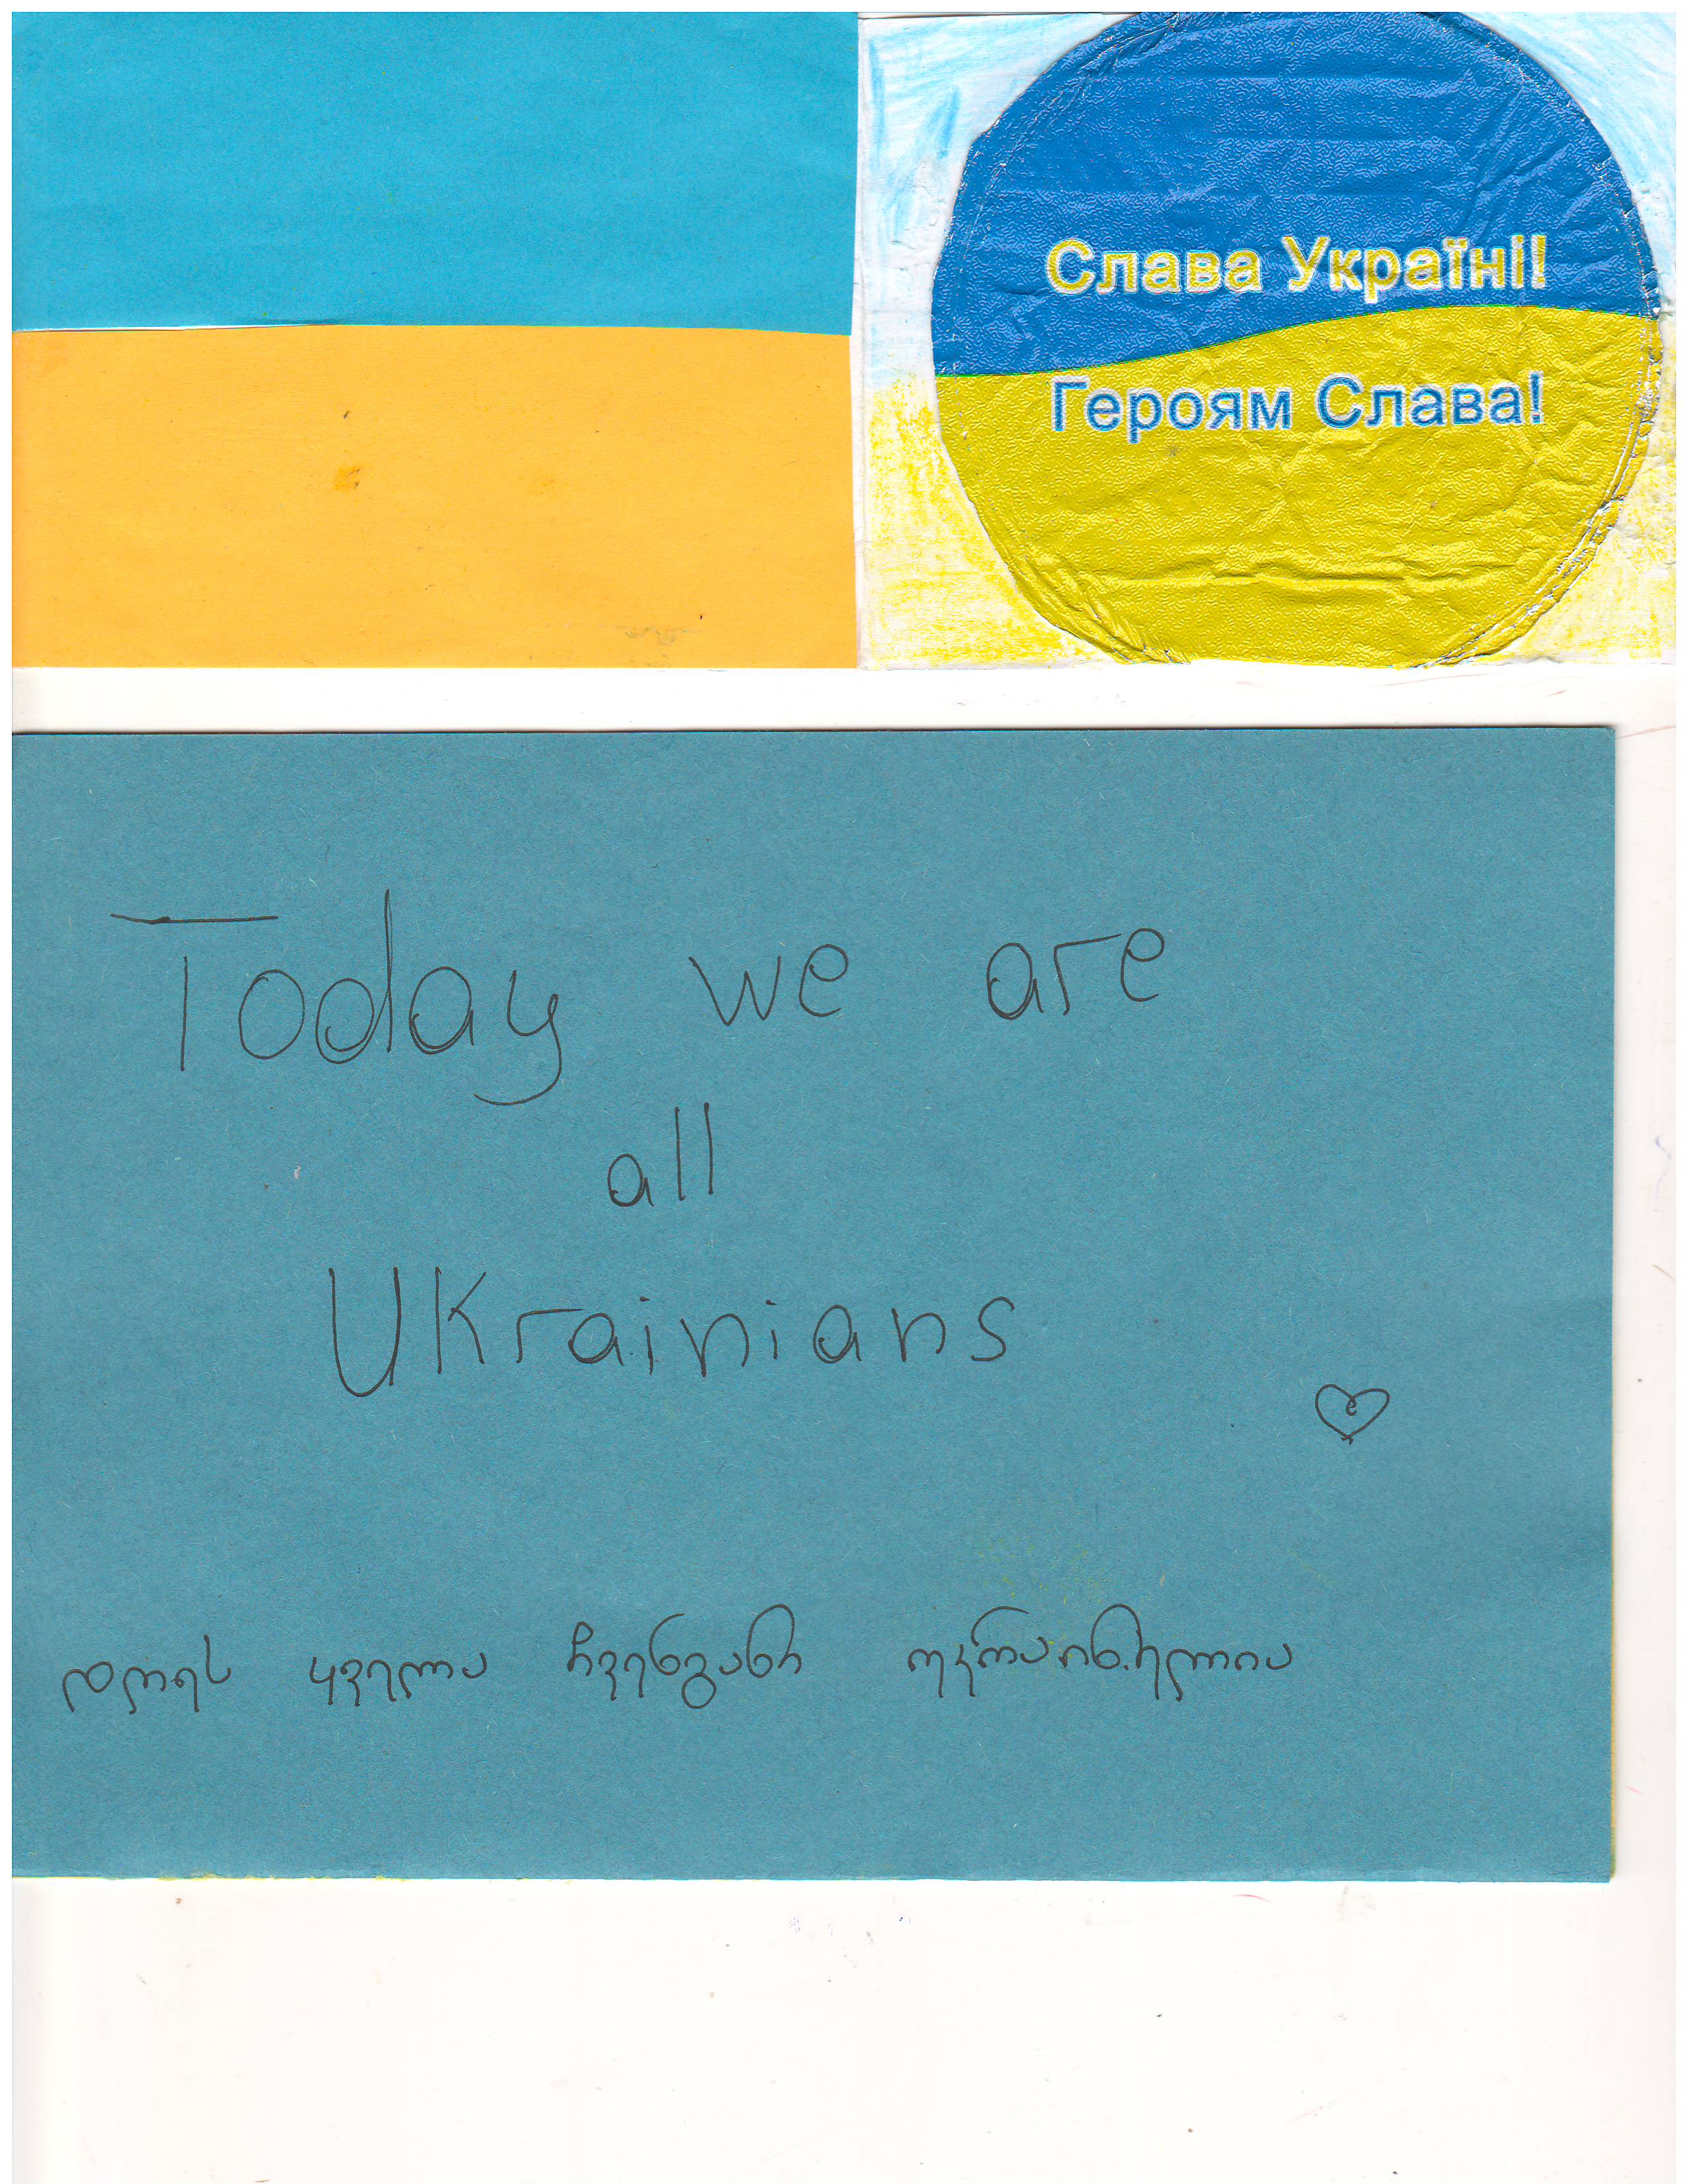 Слава Україні!
Героям Слава!
Today we are
all
Ukrainians
დღეს ყველა ჩვენგანი უკრაინელია